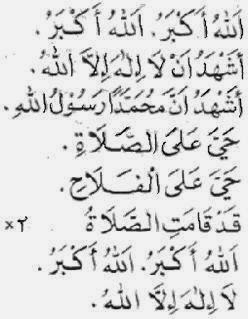 اَللّٰهُ أَكْبَرُ. اَللّٰهُ أَكْبَرُ.
أَشْهَدُ أَنْ لَا إِلٰهَ إِلَّا اللّٰهُ.
أَشْهَدُ أَنَّ مُحَمَّدًا رَسُوْلُ اللّٰهِ.
حَيَّ عَلَى الصَّلَاةِ.
حَيَّ عَلَى الْفَلَاحِ.
قَدْ قَامَتِ الصَّلَاةُ ×٢
اَللّٰهُ أَكْبَرُ. اَللّٰهُ أَكْبَرُ.
لَا إِلٰهَ إِلَّا اللّٰهُ.